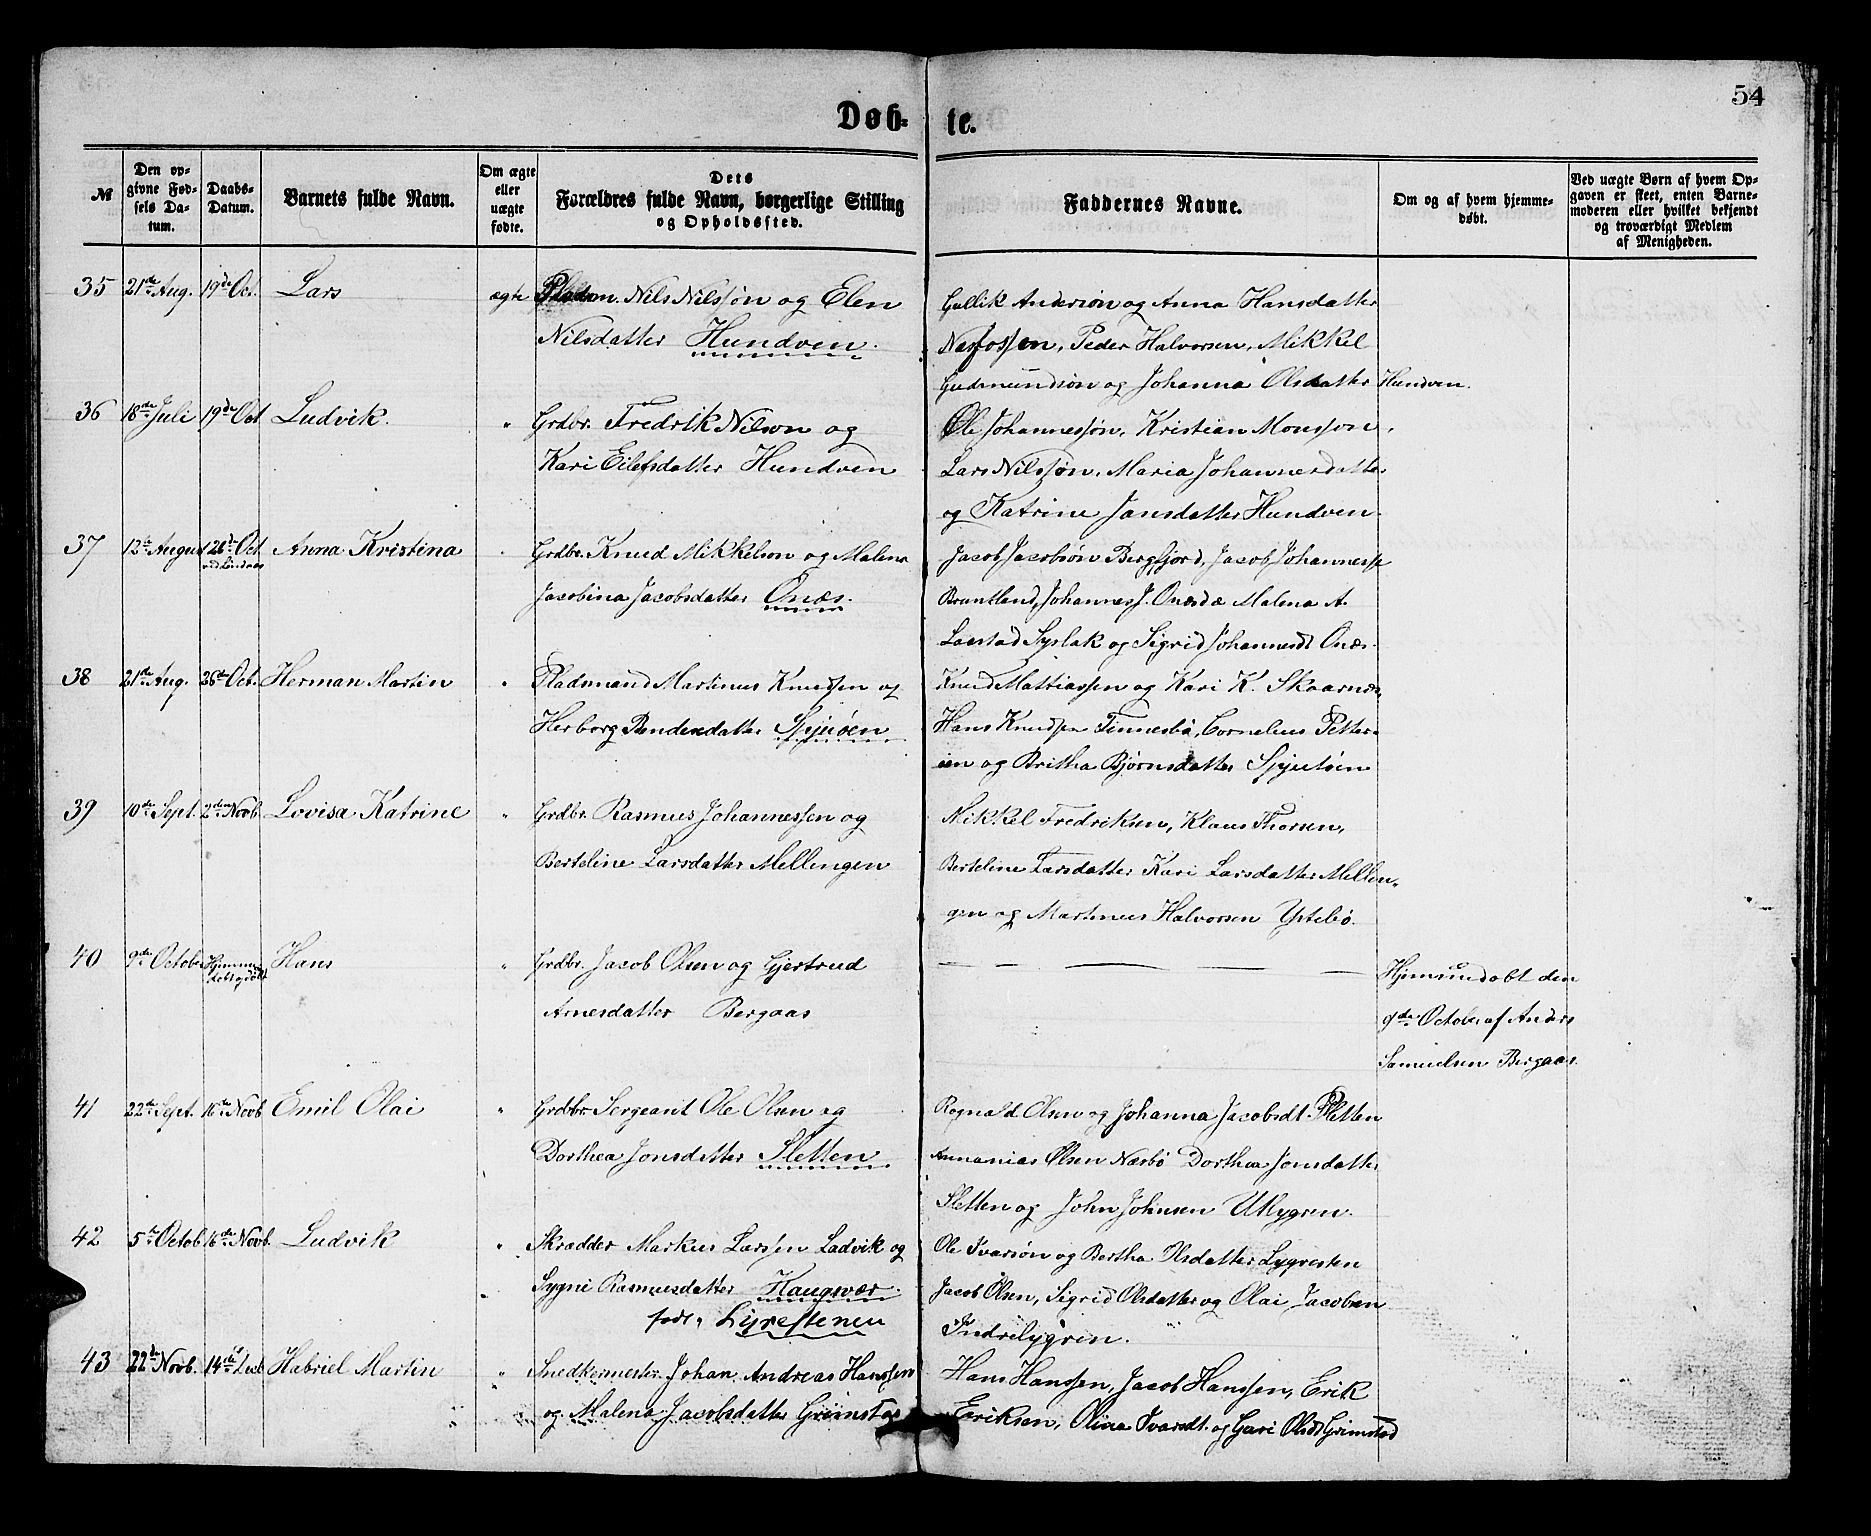 54
Døb- te.
№
Den op-
givne Fød-
sels Da-
tum.
Daabs-
Datum.
Barnets fulde Navn.
Om ægte
eller
uægte
fødte.
Dets
Forældres fulde Navn, borgerlige Stilling
og Opholdssted.
Faddernes Navne.
Om og af hvem hjemme-
døbt.
Ved uægte Børn af hvem Op-
gaven er skeet, enten Barne-
moderen eller hvilket bekjendt
og troværdigt Medlem
af Menigheden.
35 21de Aug. 19de Oct. Lars ægte Pladsm. Nils Nilssøn og Elen
Nilsdatter Hundven.
Gullik Andersøn og Anna Hansdatter
Nesfossen, Peder Halvorsen, Mikkel
Gudmundsøn og Johanna Olsdatter Hundven.
36 18de Juli 19de Oct Ludvik. " Grdbr. Fredrik Nilson og
Kari Eilefsdatter Hundven
Ole Johannessøn, Kristian Monsson,
Lars Nilssøn, Maria Johannesdatter
og Katrine Jansdatter Hundven.
37 12te August 26de Oct Anna Kristina " Grdbr. Knud Mikkelson og Malena
ved Lindaas
Jacobina Jacobsdatter Onæs.
Jacob Jacobsøn Bergfjord, Jacob Johanness
Bruntland, Johannes J. Onæs Malena A.
Syslak og Sigrid Johannesdt Onæs.
38 21de Aug. 26de Oct. Herman Martin " Pladsmand Martinus Knudsen og
Herborg Bendixdatter Spjutøen
Knud Mattiassen og Kari K. Skaarnæs,
Hans Knudsen Finnesbø, Cornelius Petter-
sen og Britha Bjørnsdatter Spjutøen
39 10de Sept. 2den Novb. Lovisa Katrine " Grdbr. Rasmus Johannessen og
Berteline Larsdatter Mellingen
Mikkel Fredriksen, Klaus Thorsen,
Berteline Larsdatter Kari Larsdatter Mellin-
gen og Martinus Halvorsen Ytrebø.
40 9de October Hjemme Hans " Grdbr. Jacob Olsen og Gjertrud
Arnesdatter Bergaas
Hjemmedøbt den
9de October af Anders
Samuelsen Bergaas.
41 22de Sept. 16de Novb Emil Olai " Grdbr. Sergeant Ole Olsen og
Dorthea Jonsdatter Sletten
Rognald Olsen og Johanna Jacobsdt. Sletten
Annanias Olsen Næsbø Dorthea Jonsdatter
Sletten og John Johnsen Utlygren.
42 5te Octob. 16de Novb. Ludvik " Skrædder Markus Larssen Ladvik og
Sygni Rasmusdatter Haugsvær.
født, Lygrestenen
Ole Ivarsøn og Bertha Ilsdatter Lygresten
Jacob Olsen, Sigrid Olsdatter og Olai Jacobsen
Indrelygren.
43 22de Novb. 14de Decb Habriel Martin " Snedkermester Johan Andreas Hanssen
og Malena Jacobsdatter Grimstad
Hans Hanssen, Jacob Hanssen, Erik
Eeriksen, Olina Ivarsdt. og Guri Olsdt Grimstad